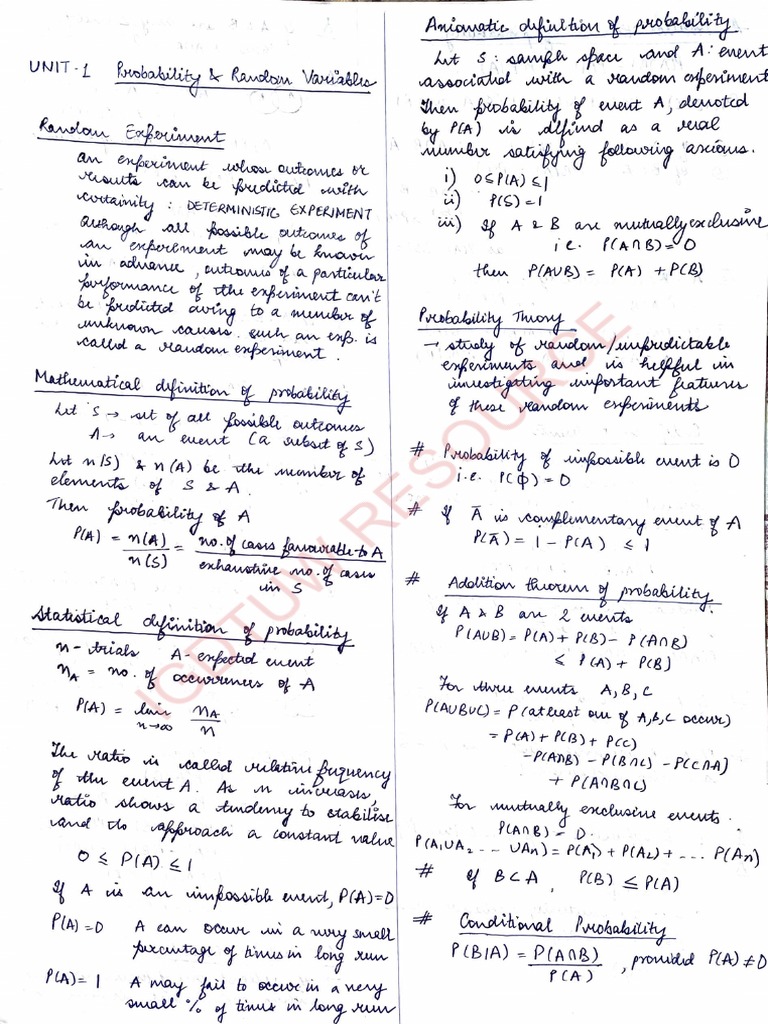 UNIT-1 Probability & Random Variables
Random Experiment
An experiment whose outcomes or
results can be predicted with
certainity : DETERMINISTIC EXPERIMENT
Although all possible outcomes of
an experiment may be known
in advance, outcomes of a particular
performance of the experiment can't
be predicted owing to a number of
unknown causes. Such an exp. is
called a random experiment.
Mathematical definition of probability
Let S → set of all possible outcomes
A → an event (a subset of S)
Let n(S) & n(A) be the number of
elements of S & A.
Then probability of A
P(A) = n(A)/n(S) = no. of cases favourable to A / exhaustive no. of cases in S
Statistical definition of probability
n - trials A - expected event
n_A = no. of occurrences of A
P(A) = lim n→∞ n_A/n
The ratio is called relative frequency
of the event A. As n increases,
ratio shows a tendency to stabilise
and to approach a constant value
0 ≤ P(A) ≤ 1
If A is an impossible event, P(A)=0
P(A)=0 A can occur in a very small
percentage of times in long run
P(A)=1 A may fail to occur in a very
small % of times in long run
Axiomatic definition of probability
Let S : sample space and A : event
associated with a random experiment
Then probability of event A, denoted
by P(A) is defined as a real
number satisfying following axioms.
i) 0≤P(A)≤1
ii) P(S)=1
iii) If A & B are mutually exclusive
i.e. P(A∩B)=0
then P(A∪B) = P(A) + P(B)
Probability Theory
→ study of random/unpredictable
experiments and is helpful in
investigating important features
of these random experiments
# Probability of impossible event is 0
i.e. P(ϕ)=0
# If Ā is complementary event of A
P(Ā) = 1 - P(A) ≤ 1
# Addition theorem of probability
If A & B are 2 events
P(A∪B) = P(A) + P(B) - P(A∩B)
≤ P(A) + P(B)
For three events A, B, C
P(A∪B∪C) = P(atleast one of A,B,C occur)
= P(A) + P(B) + P(C)
-P(A∩B) - P(B∩C) - P(C∩A)
+ P(A∩B∩C)
For mutually exclusive events.
P(A∩B) = 0.
P(A₁∪A₂ --- ∪Aₙ) = P(A₁) + P(A₂) + --- P(Aₙ)
# If B⊂A, P(B) ≤ P(A)
# Conditional Probability
P(B|A) = P(A∩B)/P(A), provided P(A) ≠ 0
IGDTUW RESOURCE